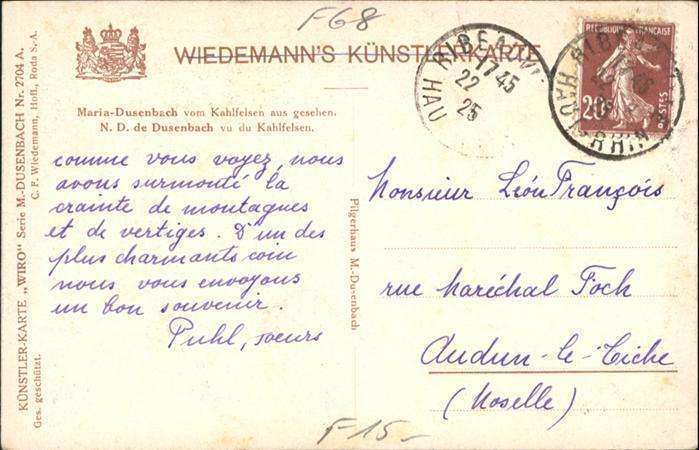 F68
WIEDEMANN'S KÜNSTLERKARTE
Maria-Dusenbach vom Kahlfelsen aus gesehen.
N. D. de Dusenbach vu du Kahlfelsen.
comme vous voyez, nous
avons surmonté la
crainte de montagnes
et de vertiges. D'un des
plus charmants coin
nous vous envoyons
un bon souvenir.
Puhl, soeurs
KÜNSTLER-KARTE „WIRO" Serie M.-DUSENBACH Nr. 2704 A.
Ges. geschützt.
C. F. Wiedemann, Hofl., Roda S.-A.
Pilgerhaus M.-Dusenbach
17 45
22
25
HAU
RÉPUBLIQUE FRANÇAISE
20c
POSTES
HAUT-RHIN
Monsieur Léon François
rue Maréchal Foch
Audun-le-Tiche
(Moselle)
F-15-